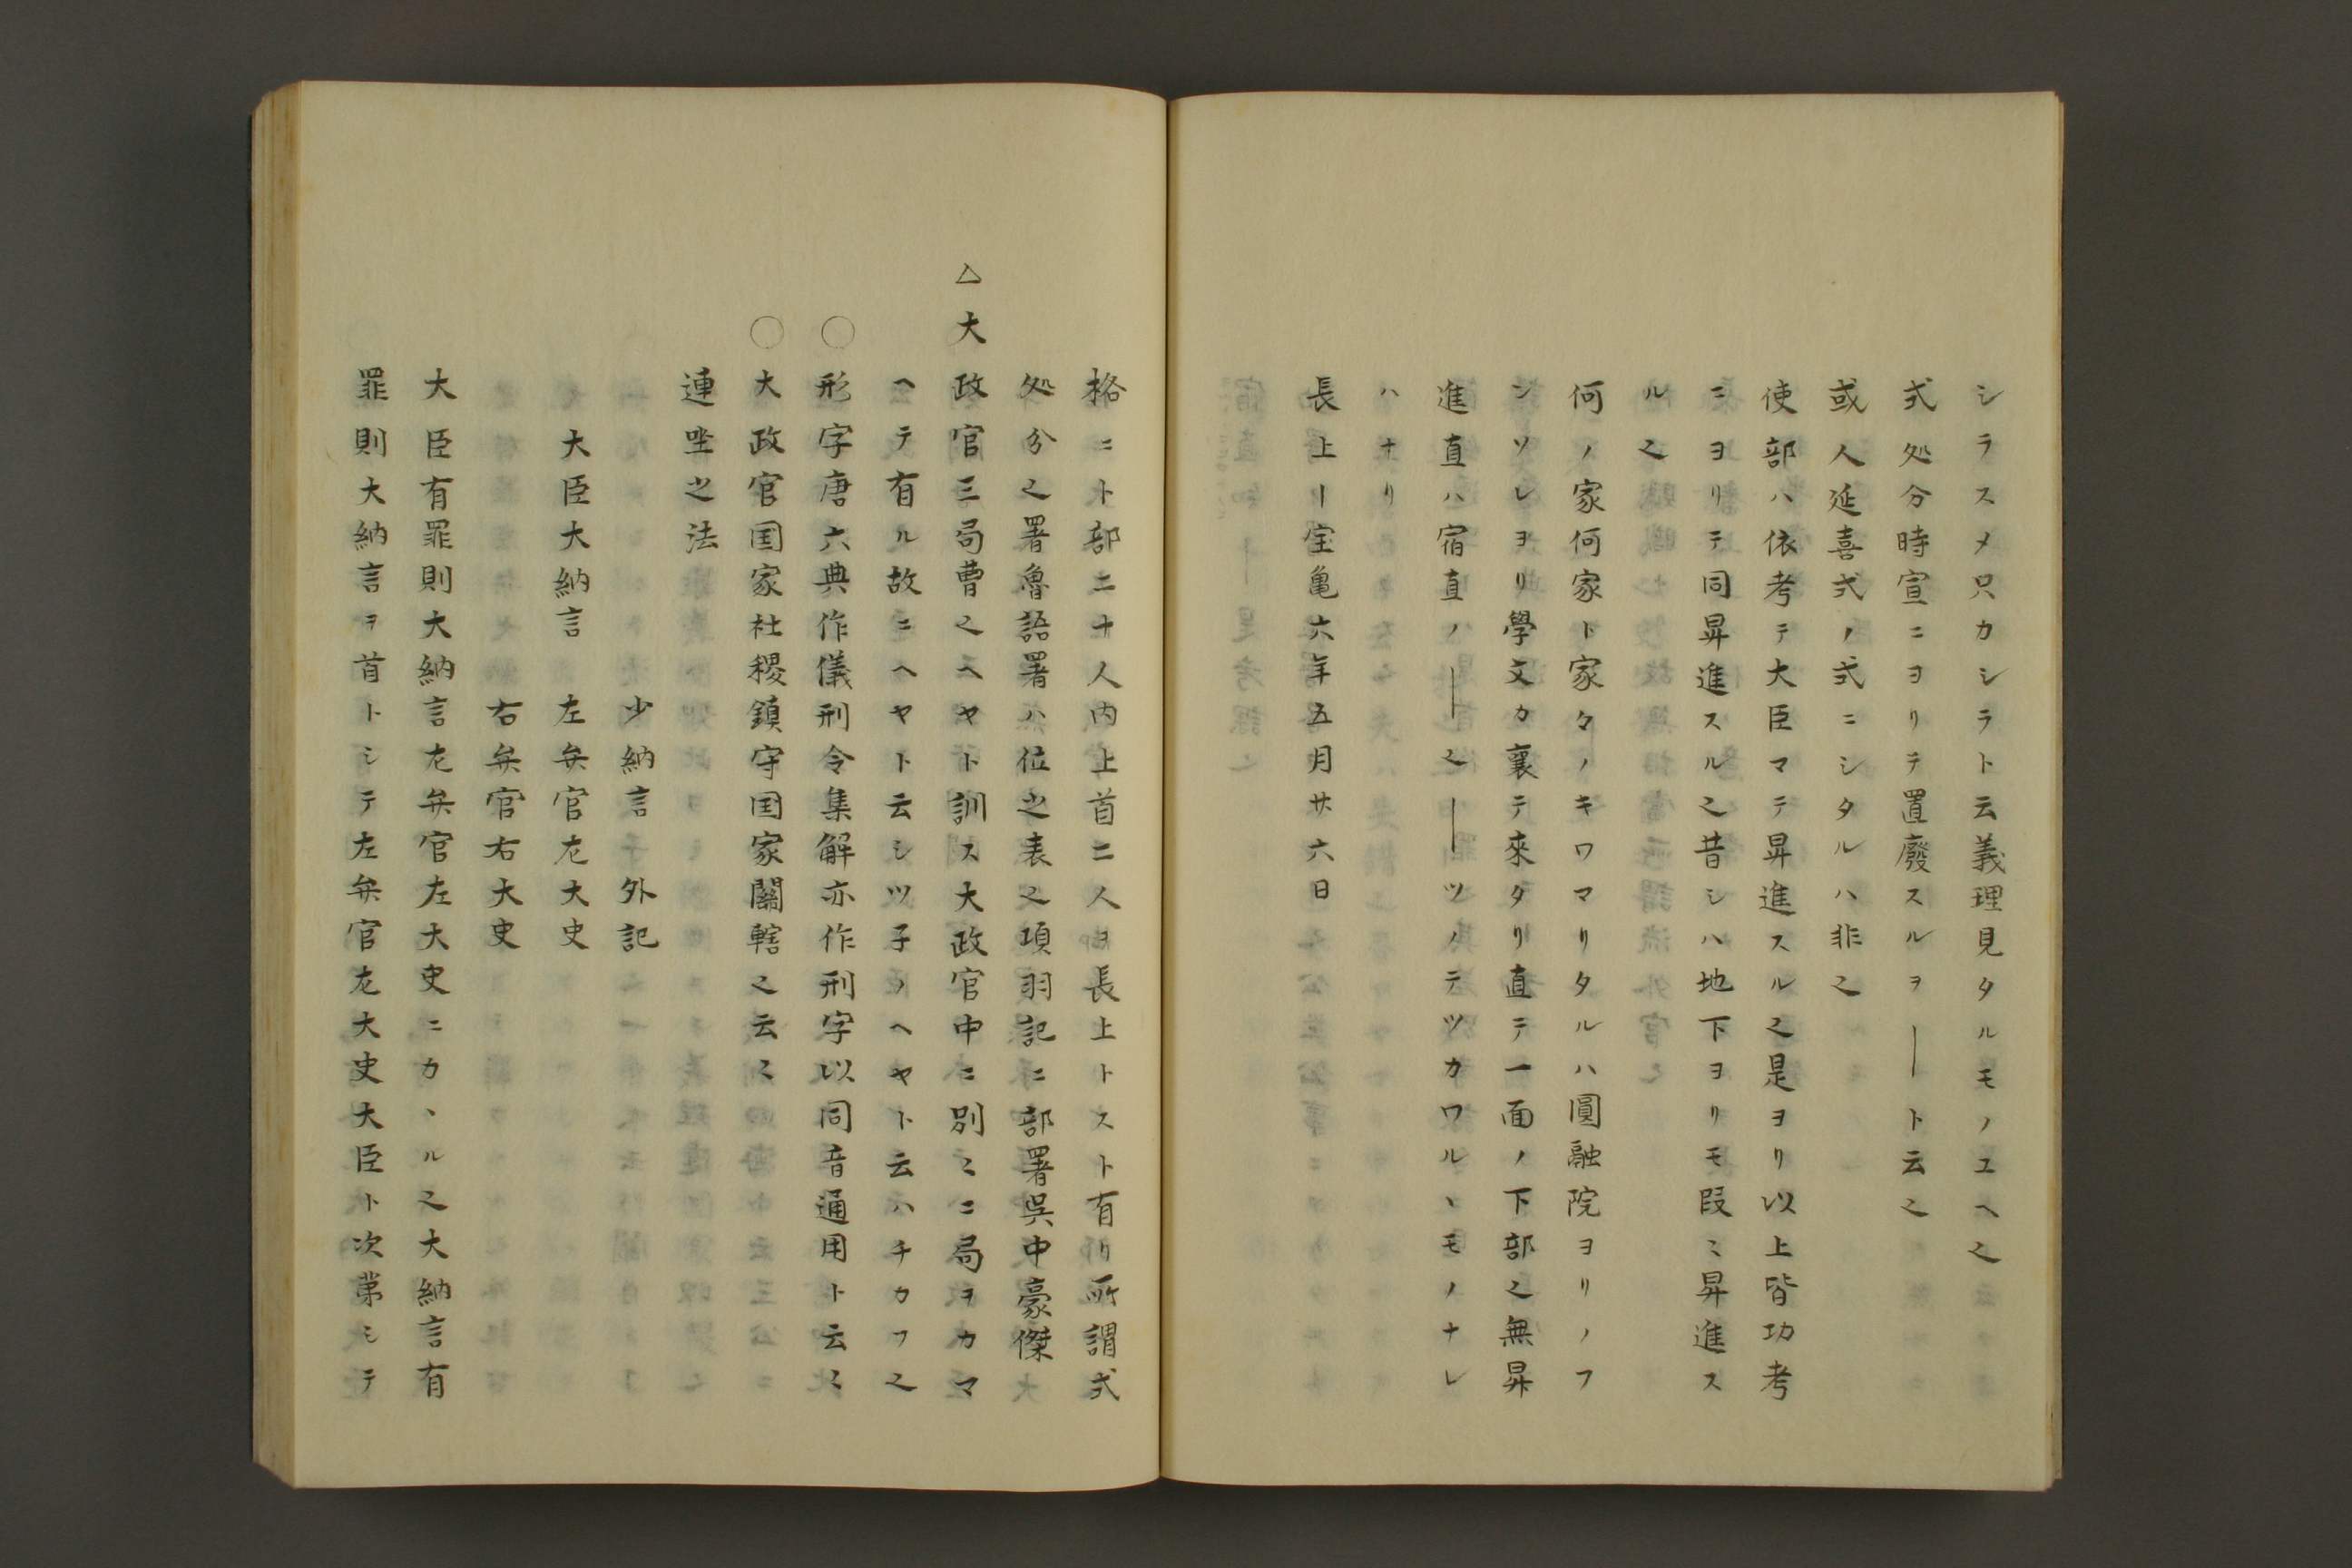 シラスメ只カシラト云義理見タルモノユヘ之
式処分時宣ニヨリテ置廢スルヲ―ト云之
或人延喜式ノ式ニシタルハ非之
使部ハ依考テ大臣マテ昇進スル之是ヨリ以上皆功考
ニヨリテ同昇進スル之昔シハ地下ヨリモ段ミ昇進ス
ル之
何ノ家何家ト家々ノキワマリタルハ圓融院ヨリノフ
ンソレヨリ學文カ襄テ來タリ直テ一面ノ下部之無昇
進直ハ宿直ノ―之―ツノテツカワルヽモノナレ
ハナリ
長上ー宝亀六年五月廿六日
格ニト部二十人内上首二人ヲ長上トスト有リ所謂式
処分之署魯語署ハ位之表之項羽記ニ部署呉中豪傑
△大政官三局曹之ヘヤト訓ス大政官中ニ別ミニ局ヲカマ
ヘテ有ル故ニヘヤト云シツ子ノヘヤト云ハチカフ之
○形字唐六典作儀刑令集解亦作刑字以同音通用ト云々
○大政官国家社稷鎮守国家關轄之云々
連坐之法
少納言 外記
大臣大納言 左弁官左大史
右弁官右大史
大臣有罪則大納言左弁官左大史ニカヽル之大納言有
罪則大納言ヲ首トシテ左弁官左大史大臣ト次第シテ